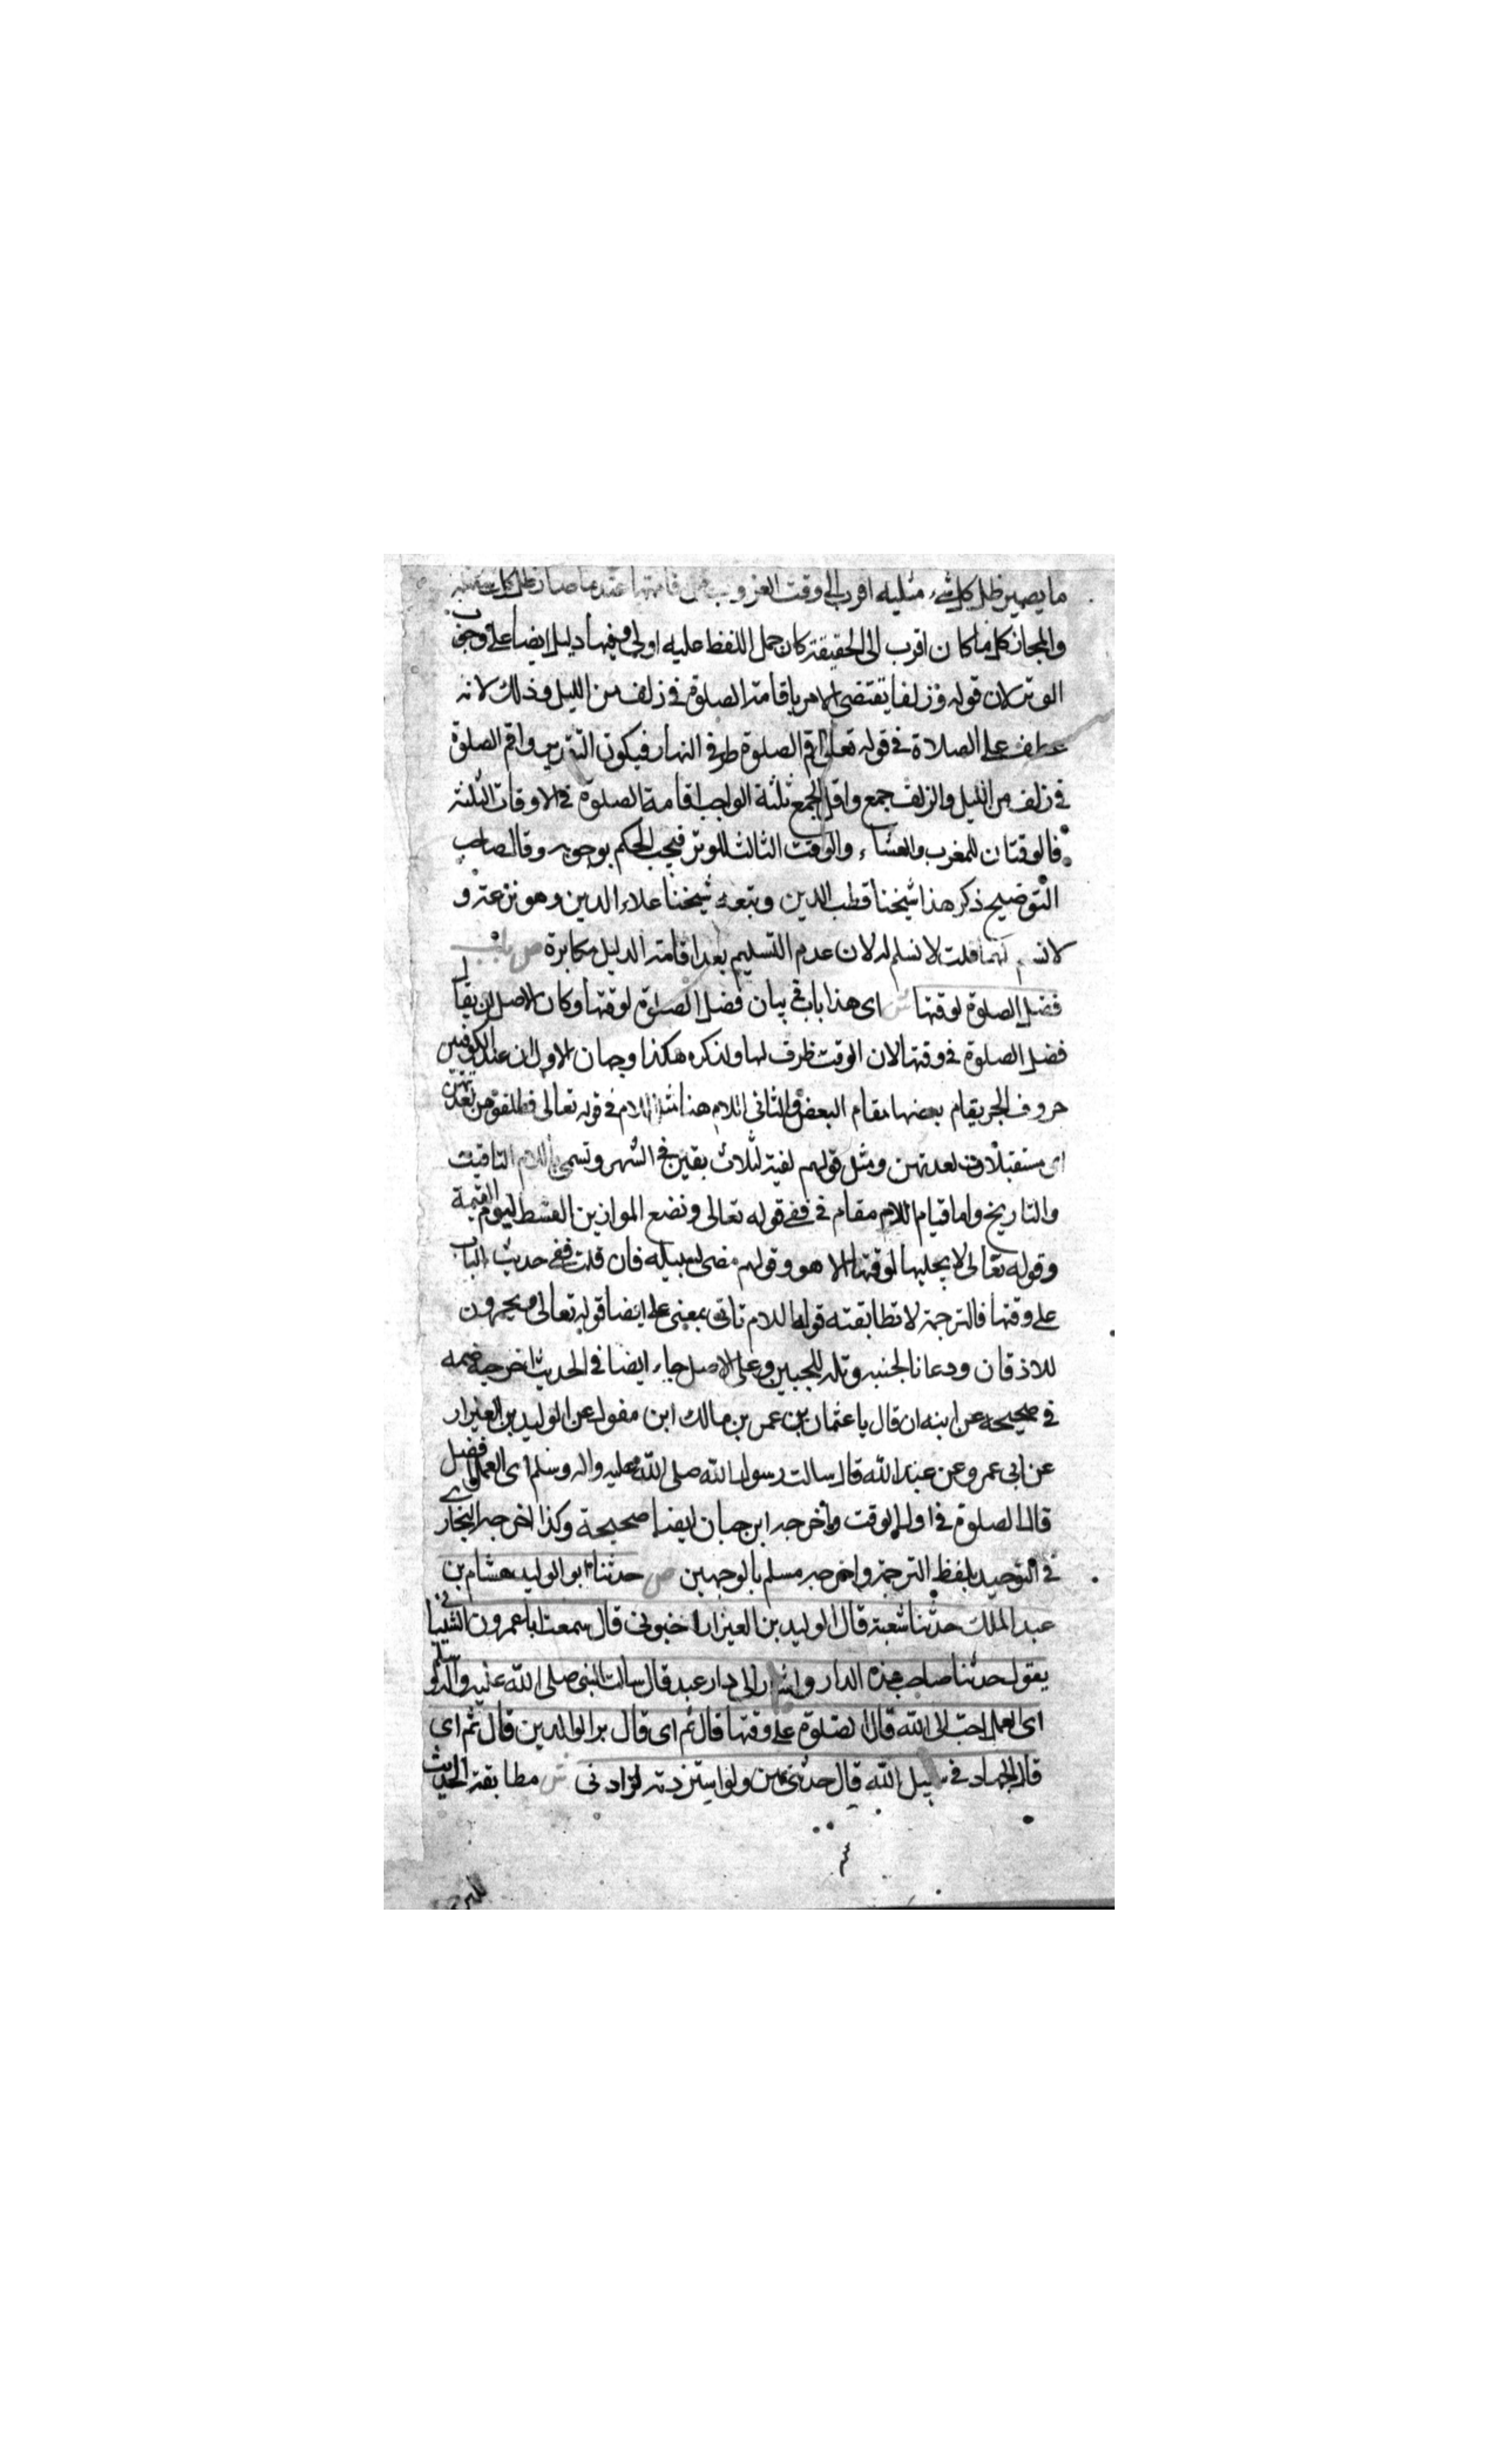 ما يصير ظل كل شيء مثليه اقرب الى وقت الغروب من اقامتها عند ما صار ظل كل شيء مثله
والمجاز كل ما كان اقرب الى الحقيقة كان حمل اللفظ عليه اولى وفيها دليل ايضا على وجوب
الوتر لان قوله وزلفا يقتضى الامر باقامة الصلوة فى زلف من الليل وذلك لانه
عطف على الصلاة فى قوله تعالى اقم الصلوة طرفى النهار فيكون التقدير واقم الصلوة
فى زلف من الليل والزلف جمع واقل الجمع ثلثة الواجب اقامة الصلوة فى الاوقات الثلثة
فالوقتان للمغرب والعشاء والوقت الثالث للوتر فيجب الحكم بوجوبه وقال صاحب
التوضيح ذكر هذا شيخنا قطب الدين وتبعه شيخنا علاء الدين وهو نزعة و
لا نسلم لهما قلت لا نسلم له لان عدم التسليم بعد اقامة الدليل مكابرة ص باب
فضل الصلوة لوقتها ش اى هذا باب فى بيان فضل الصلوة لوقتها وكان الاصل ان يقال
فضل الصلوة فى وقتها لان الوقت ظرف لها ولذكره هكذا وجهان الاول ان عند الكوفيين
حروف الجر يقام بعضها مقام البعض والثانى اللام هنا مثل اللام فى قوله تعالى فطلقوهن لعدتهن
اى مستقبلات لعدتهن ومثل قولهم لقيته لثلاث بقين فى الشهر وتسمى باللام التاقيت
والتاريخ واما قيام اللام مقام فى ففى قوله تعالى ونضع الموازين القسط ليوم القيمة
وقوله تعالى لا يجليها لوقتها الا هو وقولهم مضى لسبيله فان قلت ففى حديث الباب
على وقتها فالترجمة لا تطابقته قوله اللام تاتى بمعنى على ايضا قوله تعالى ويخرون
للاذقان ودعانا لجنبه وتله للجبين وعلى الاصل جاء ايضا فى الحديث اخرجه
فى صحيحه عن ابنه ان قال يا عثمان بن عمر بن مالك ابن مغول عن الوليد بن العيزار
عن ابى عمرو عن عبد الله قال سالت رسول الله صلى الله عليه واله وسلم اى العمل افضل
قال الصلوة فى اول الوقت واخرجه ابن حبان ايضا صحيحة وكذا اخرجه البخارى
فى التوحيد بلفظ الترجمة واخرجه مسلم بالوجهين ص حدثنا ابو الوليد هشام بن
عبد الملك حدثنا شعبة قال الوليد بن العيزار اخبرنى قال سمعت ابا عمرون الشيبانى
يقول حدثنا صاحب هذه الدار واشار الى دار عبد قال سالت النبى صلى الله عليه واله وسلم
اى العمل احب الى الله قال الصلوة على وقتها قال ثم اى قال بر الوالدين قال ثم اى
قال الجهاد فى سبيل الله قال حدثنى بهن ولو استزدته لزادنى ش مطابقة الحديث